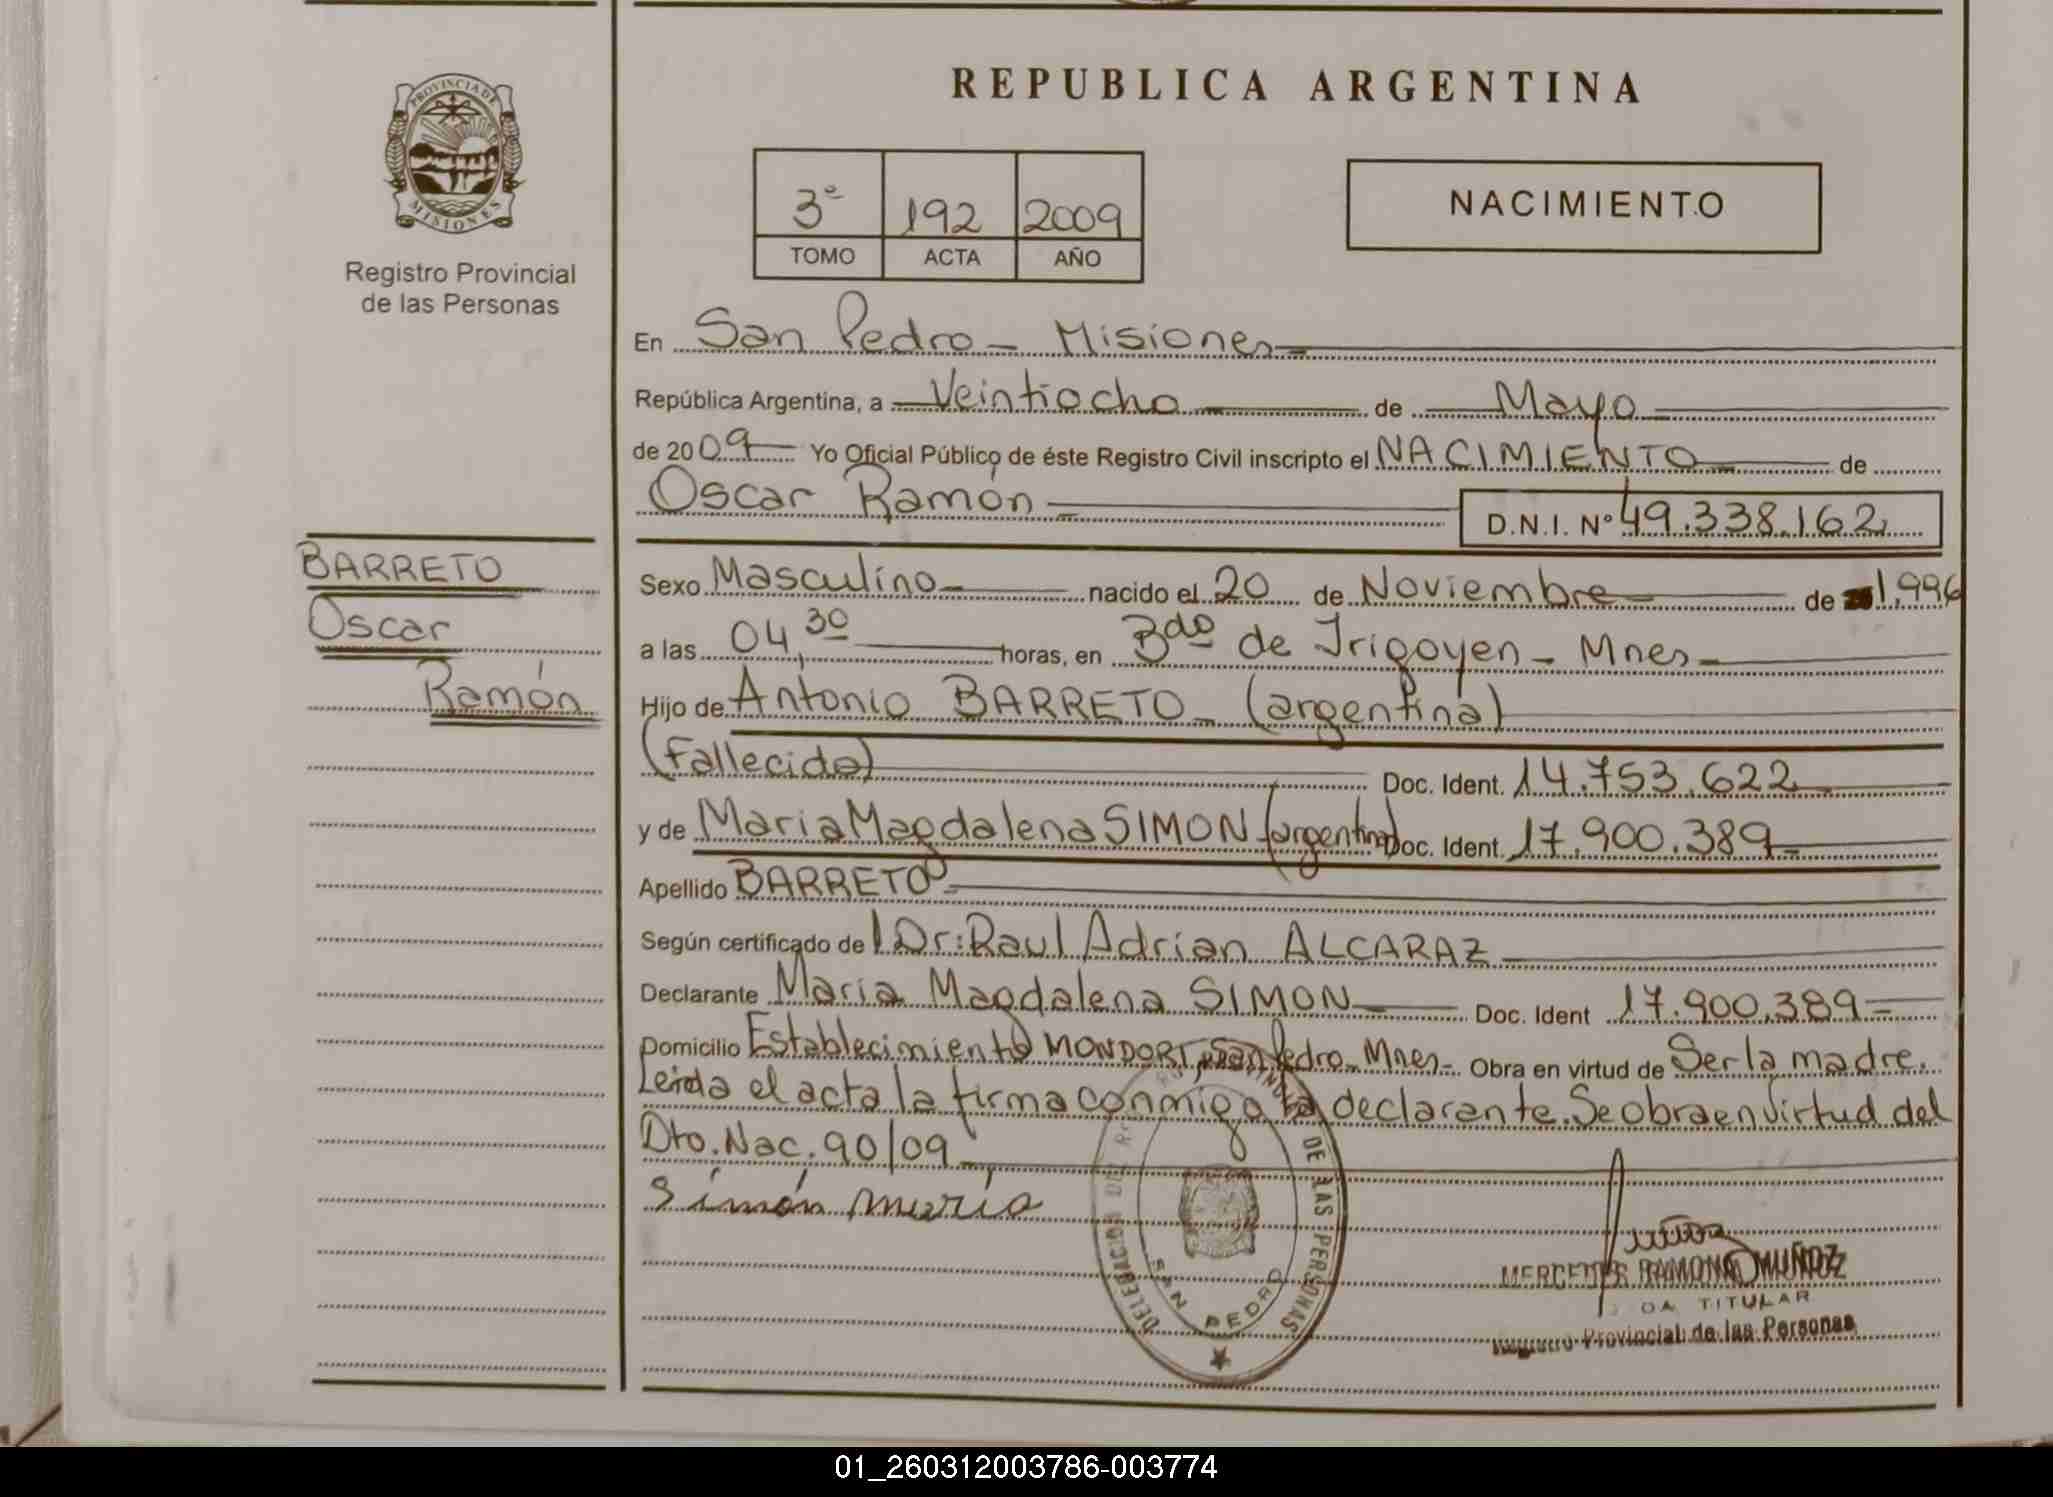 REPUBLICA ARGENTINA
PROVINCIA DE
MISIONES
Registro Provincial
de las Personas
3º 192 2009
TOMO ACTA AÑO
NACIMIENTO
En San Pedro - Misiones
República Argentina, a Veintiocho de Mayo
de 2009 Yo Oficial Público de éste Registro Civil inscripto el NACIMIENTO de
Oscar Ramón D.N.I. Nº 49.338.162
BARRETO
Oscar
Ramón
Sexo Masculino nacido el 20 de Noviembre de 1.996
a las 04,30 horas, en Bdo de Irigoyen - Mnes
Hijo de Antonio BARRETO (argentina)
(Fallecido) Doc. Ident. 14.753.622
y de Maria Magdalena SIMON (argentina) Doc. Ident. 17.900.389
Apellido BARRETO
Según certificado de l Dr: Raul Adrian ALCARAZ
Declarante Maria Magdalena SIMON Doc. Ident 17.900.389
Domicilio Establecimiento MONDORI, San Pedro - Mnes - Obra en virtud de Ser la madre.
Leida el acta la firma conmigo la declarante. Se obra en virtud del
Dto. Nac. 90/09
Simón María
DELEGACION DEL DE LAS PERSONAS
SAN PEDRO
MERCEDES RAMONA MUÑOZ
TITULAR
Registro Provincial de las Personas
01_260312003786-003774